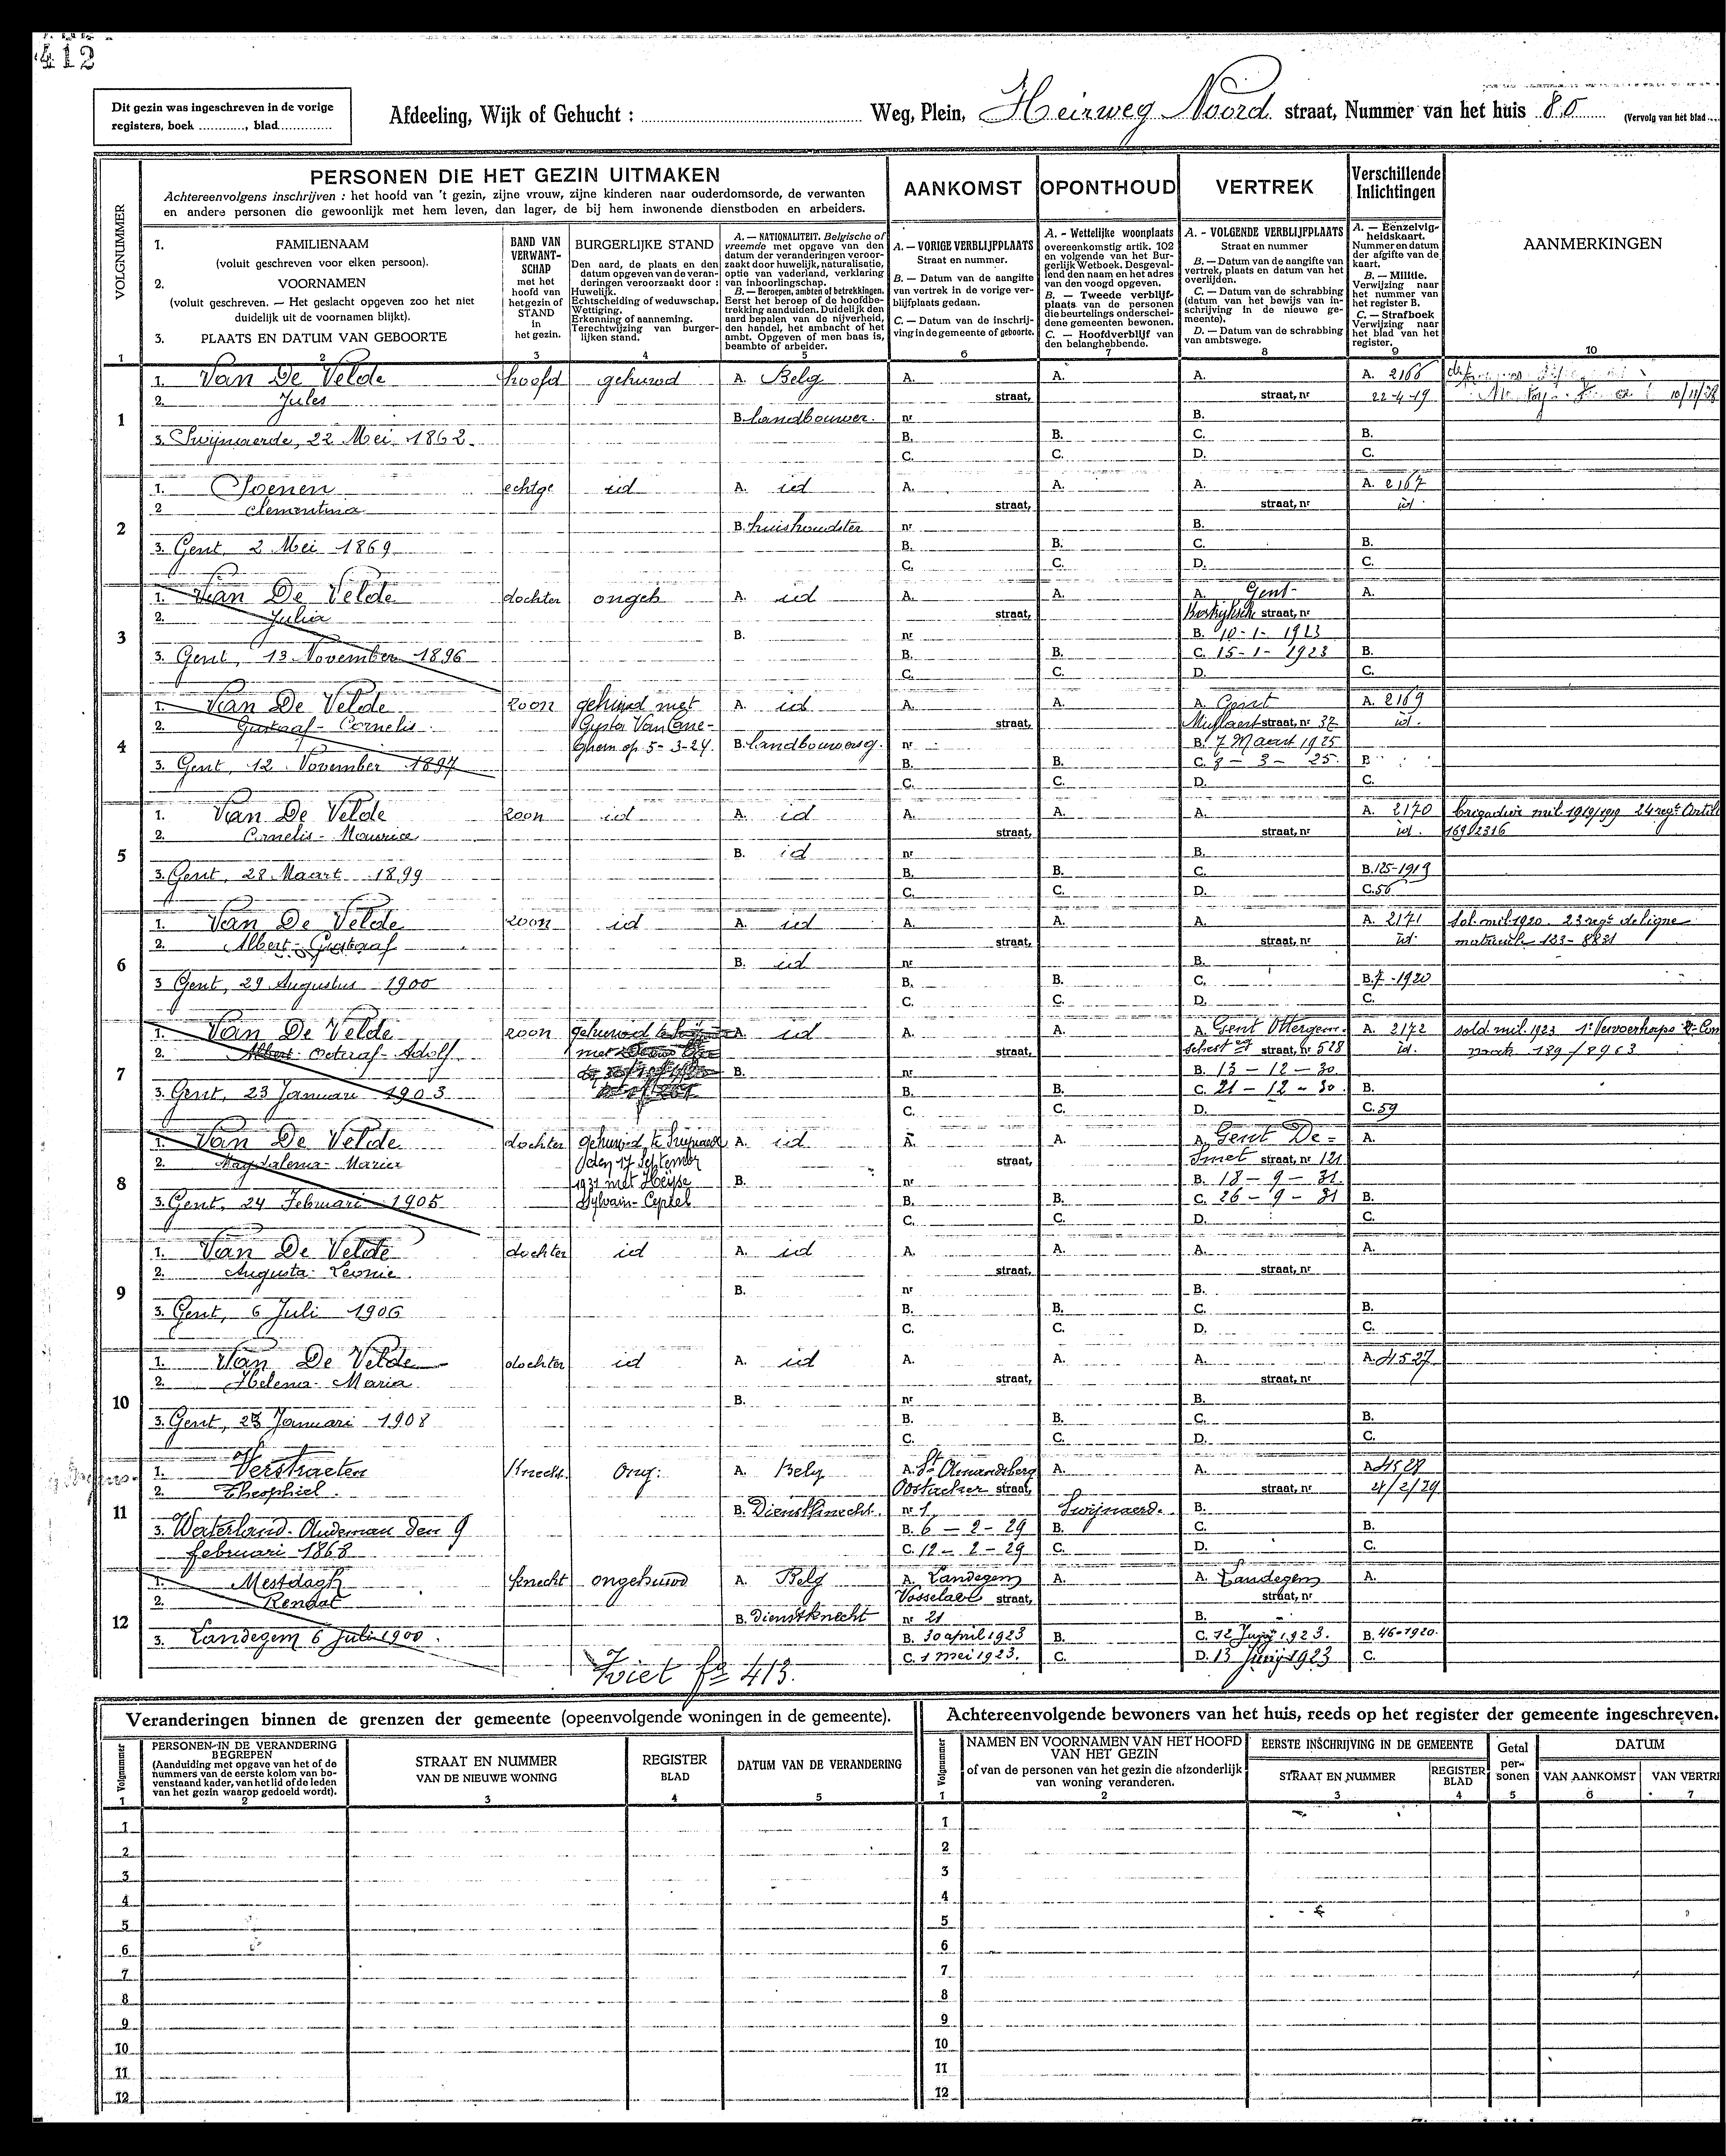 412
Dit gezin was ingeschreven in de vorige
registers, boek ............, blad..............
Afdeeling, Wijk of Gehucht :
Weg, Plein, Heirweg Noord straat, Nummer van het huis 80
(Vervolg van het blad
VOLGNUMMER
PERSONEN DIE HET GEZIN UITMAKEN
Achtereenvolgens inschrijven : het hoofd van 't gezin, zijne vrouw, zijne kinderen naar ouderdomsorde, de verwanten
en andere personen die gewoonlijk met hem leven, dan lager, de bij hem inwonende dienstboden en arbeiders.
AANKOMST
OPONTHOUD
VERTREK
Verschillende
Inlichtingen
1. FAMILIENAAM
(voluit geschreven voor elken persoon).
2. VOORNAMEN
(voluit geschreven. — Het geslacht opgeven zoo het niet
duidelijk uit de voornamen blijkt).
3. PLAATS EN DATUM VAN GEBOORTE
BAND VAN
VERWANT-
SCHAP
met het
hoofd van
het gezin of
STAND
in
het gezin.
BURGERLIJKE STAND
Den aard, de plaats en den
datum opgeven van de veran-
deringen veroorzaakt door :
Huwelijk.
Echtscheiding of weduwschap.
Wettiging.
Erkenning of aanneming.
Terechtwijzing van burger-
lijken stand.
A. — NATIONALITEIT. Belgische of
vreemde met opgave van den
datum der veranderingen veroor-
zaakt door huwelijk, naturalisatie,
optie van vaderland, verklaring
van inboorlingschap.
B. — Beroepen, ambten of betrekkingen.
Eerst het beroep of de hoofdbe-
trekking aanduiden. Duidelijk den
aard bepalen van de nijverheid,
den handel, het ambacht of het
ambt. Opgeven of men baas is,
beambte of arbeider.
A. — VORIGE VERBLIJFPLAATS
Straat en nummer.
B. — Datum van de aangifte
van vertrek in de vorige ver-
blijfplaats gedaan.
C. — Datum van de inschrij-
ving in de gemeente of geboorte.
A. - Wettelijke woonplaats
overeenkomstig artik. 102
en volgende van het Bur-
gerlijk Wetboek. Desgeval-
lend den naam en het adres
van den voogd opgeven.
B. — Tweede verblijf-
plaats van de personen
die beurtelings onderschei-
dene gemeenten bewonen.
C. — Hoofdverblijf van
den belanghebbende.
A. - VOLGENDE VERBLIJFPLAATS
Straat en nummer
B. — Datum van de aangifte van
vertrek, plaats en datum van het
overlijden.
C. — Datum van de schrabbing
(datum van het bewijs van in-
schrijving in de nieuwe ge-
meente).
D. — Datum van de schrabbing
van ambtswege.
A. — Eenzelvig-
heidskaart.
Nummer en datum
der afgifte van de
kaart.
B. — Militie.
Verwijzing naar
het nummer van
het register B.
C. — Strafboek
Verwijzing naar
het blad van het
register.
AANMERKINGEN
1 2 3 4 5 6 7 8 9 10
1. Van De Velde hoofd gehuwd A. Belg A. A. A. A. 2166
2. Jules straat, straat, nr 22-4-19 10/11/38
1 B. landbouwer. nr B.
3. Swijnaerde, 22 Mei 1862. B. B. C. B.
C. C. D. C.
1. Soenen echtge id A. id A. A. A. A. 2167
2 Clementina straat, straat, nr id
2 B. huishoudster nr B.
3. Gent, 2 Mei 1869 B. B. C. B.
C. C. D. C.
1. Van De Velde dochter ongeh A. id A. A. A. Gent A.
2. Julia straat, Kortrijksche straat, nr
3 B. nr B. 10-1-1923
3. Gent, 13 November 1896 B. B. C. 15-1-1923 B.
C. C. D. C.
1. Van De Velde zoon gehuwd met A. id A. A. A. Gent A. 2169
2. Gustaaf-Cornelis straat, straat, nr 32 id.
4 op 5-3-24 B. landbouwersg. nr B. 7 Maart 1925
3. Gent, 12 November 1897 B. B. C. 9-3-25. B
C. C. D. C.
1. Van De Velde zoon id A. id A. A. A. A. 2170 brigadier mil. 1919/1919 24 regt Artil
2. Cornelis-Maurice straat, straat, nr id. 169/2316
5 B. id nr B.
3. Gent, 28 Maart 1899 B. B. C. B. 125-1919
C. C. D. C. 56
1. Van De Velde zoon id A. id A. A. A. A. 2171 Sol. mil. 1920. 23 regt de ligne
2. Albert-Gustaaf straat, straat, nr id. matricul 123-8831
6 B. id nr B.
3 Gent, 29 Augustus 1900 B. B. C. B. 7-1920
C. C. D. C.
1. Van De Velde zoon gehuwd te A. id A. A. A. Gent Ottergem- A. 2172 sold. mil. 1923 1e Vervoerkorps
2. Albert Octaaf-Adolf met straat, schest eg straat, nr 528 id. 189/8963
7 B. nr B. 13-12-30
3. Gent, 23 Januari 1903 B. B. C. 21-12-30 B.
C. C. D. C. 59
1. Van De Velde dochter gehuwd te A. id A. A. A. Gent De- A.
2. Magdalena-Maria den 17 September straat, Smet straat, nr 121
8 1931 met Heyse B. nr B. 18-9-31.
3. Gent, 24 Februari 1905 Sylvain-Cyriel B. B. C. 26-9-31 B.
C. C. D. C.
1. Van De Velde dochter id A. id A. A. A. A.
2. Augusta-Leonie straat, straat, nr
9 B. nr B.
3. Gent, 6 Juli 1906 B. B. C. B.
C. C. D. C.
1. Van De Velde dochter id A. id A. A. A. A. 4527
2. Helena-Maria straat, straat, nr
10 B. nr B.
3. Gent, 23 Januari 1908 B. B. C. B.
C. C. D. C.
1. Verstraeten Knecht. Ong: A. Belg A. St Amandsberg A. A. A. 4528
2. Theophiel. Oostacker straat, straat, nr 21/2/29
11 B. Dienstknecht. nr 1 Swijnaerd. B.
3. Waterland-Oudeman den 9 B. 6-2-29 B. C. B.
februari 1868 C. 12-2-29 C. D. C.
1. Mestdagh knecht ongehuwd A. Belg A. Landegem A. A. Landegem A.
2. Renaat Vosselare straat, straat, nr
12 B. Dienstknecht nr 21 B.
3. Landegem 6 Juli 1900. B. 30 april 1923 B. C. 12 Juny 1923. B. 46-1920.
C. 1 mei 1923. C. D. 13 Juny 1923 C.
Ziet fo 413.
Veranderingen binnen de grenzen der gemeente (opeenvolgende woningen in de gemeente).
Achtereenvolgende bewoners van het huis, reeds op het register der gemeente ingeschreven.
Volgnummer
PERSONEN IN DE VERANDERING
BEGREPEN
(Aanduiding met opgave van het of de
nummers van de eerste kolom van bo-
venstaand kader, van het lid of de leden
van het gezin waarop gedoeld wordt).
STRAAT EN NUMMER
VAN DE NIEUWE WONING
REGISTER
BLAD
DATUM VAN DE VERANDERING
Volgnummer
NAMEN EN VOORNAMEN VAN HET HOOFD
VAN HET GEZIN
of van de personen van het gezin die afzonderlijk
van woning veranderen.
EERSTE INSCHRIJVING IN DE GEMEENTE
STRAAT EN NUMMER
REGISTER
BLAD
Getal
per-
sonen
DATUM
VAN AANKOMST
VAN VERTRE
1 2 3 4 5 1 2 3 4 5 6 7
1 1
2 2
3 3
4 4
5 5
6 6
7 7
8 8
9 9
10 10
11 11
12 12